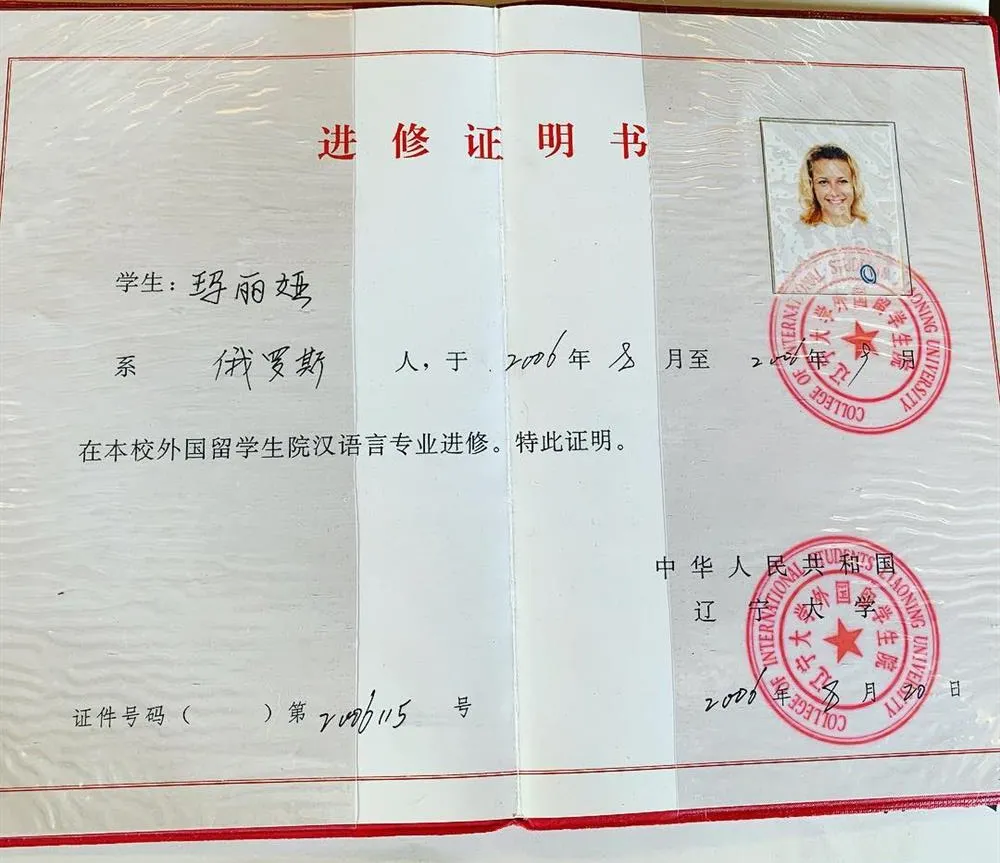 进修证明书
学生：玛丽娅
系 俄罗斯 人，于 2006 年 8 月至 2006 年 9 月
在本校外国留学生院汉语言专业进修。特此证明。
COLLEGE OF INTERNATIONAL STUDENTS LIAONING UNIVERSITY
辽宁大学外国留学生院
中华人民共和国
辽宁大学
COLLEGE OF INTERNATIONAL STUDENTS LIAONING UNIVERSITY
辽宁大学外国留学生院
2006 年 8 月 20 日
证件号码（ ）第 2006115 号